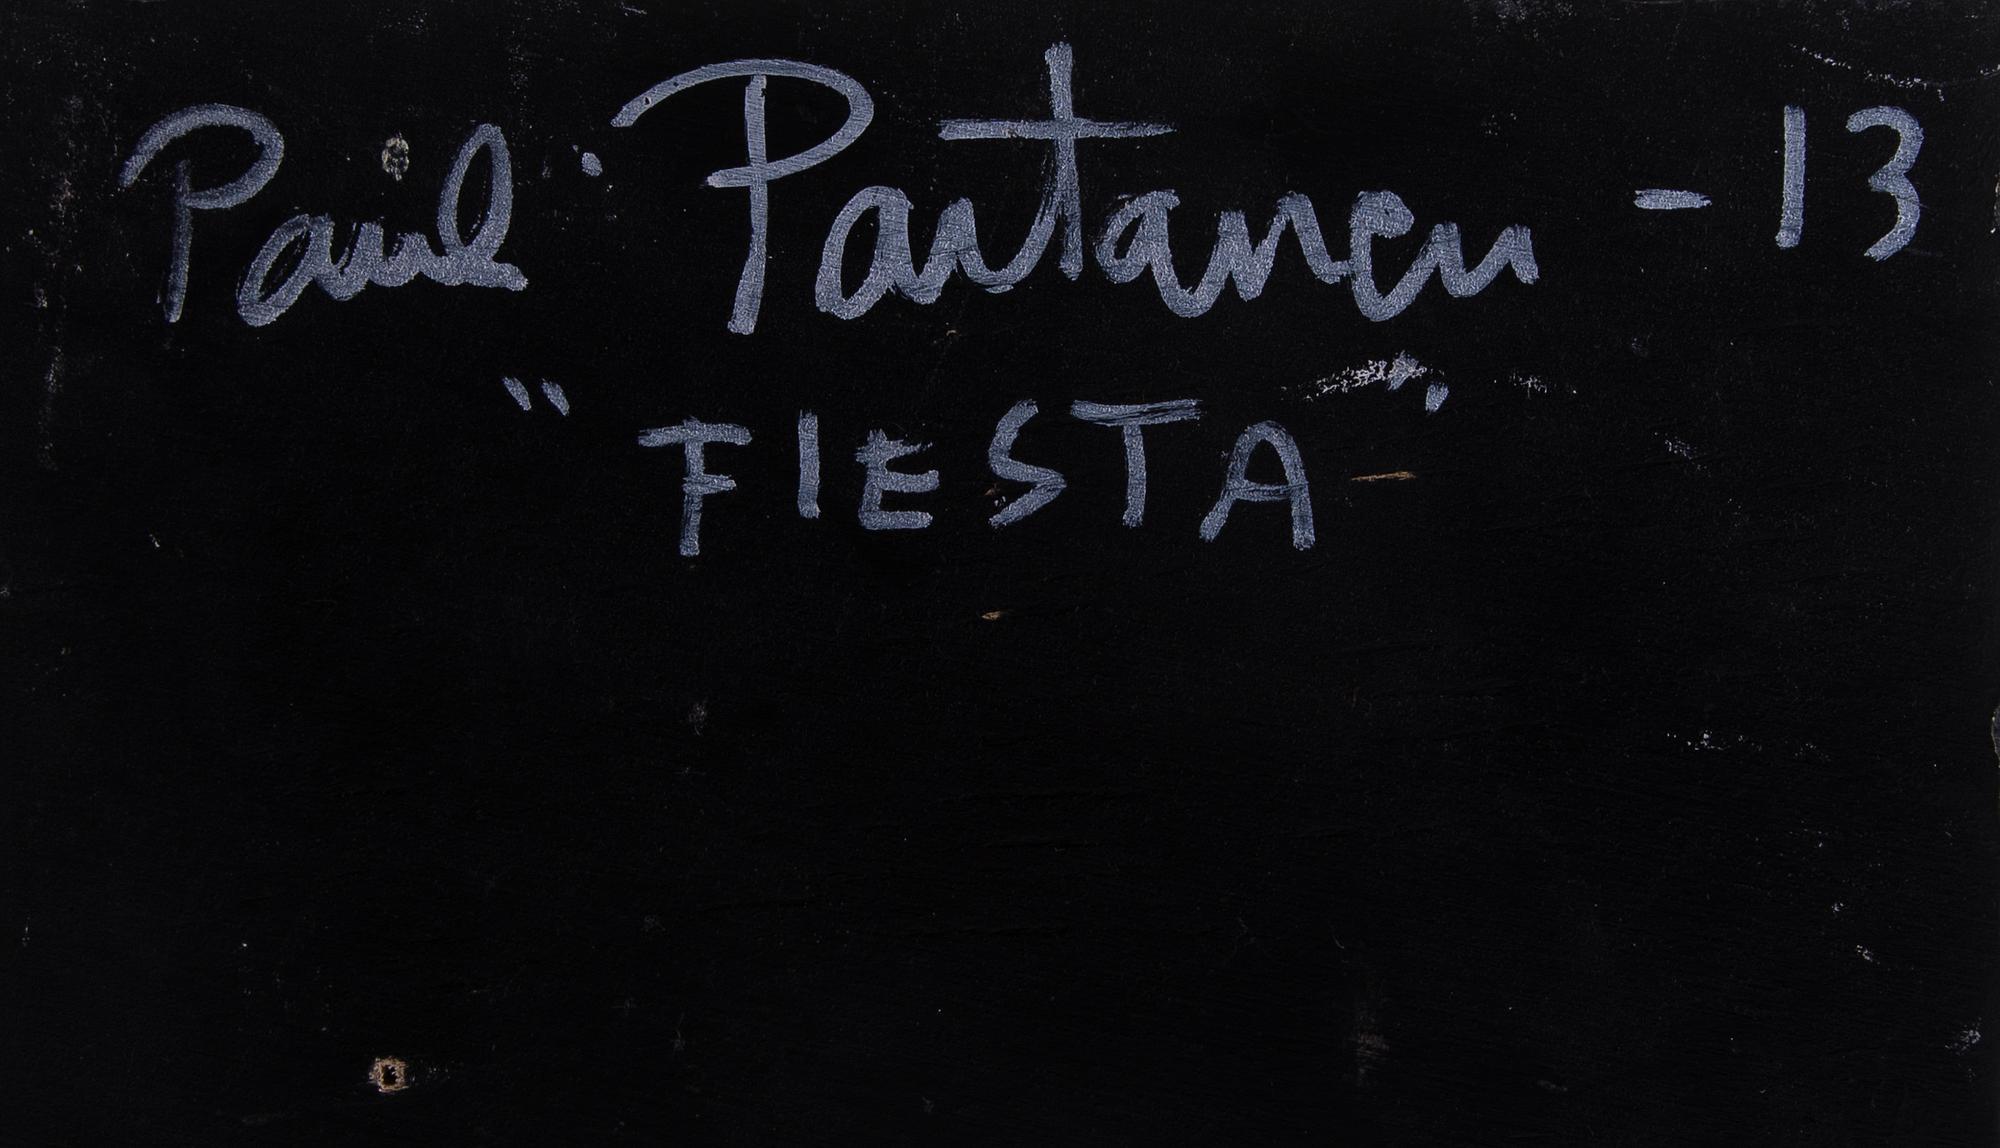 Paul Partanen -13
"FIESTA"